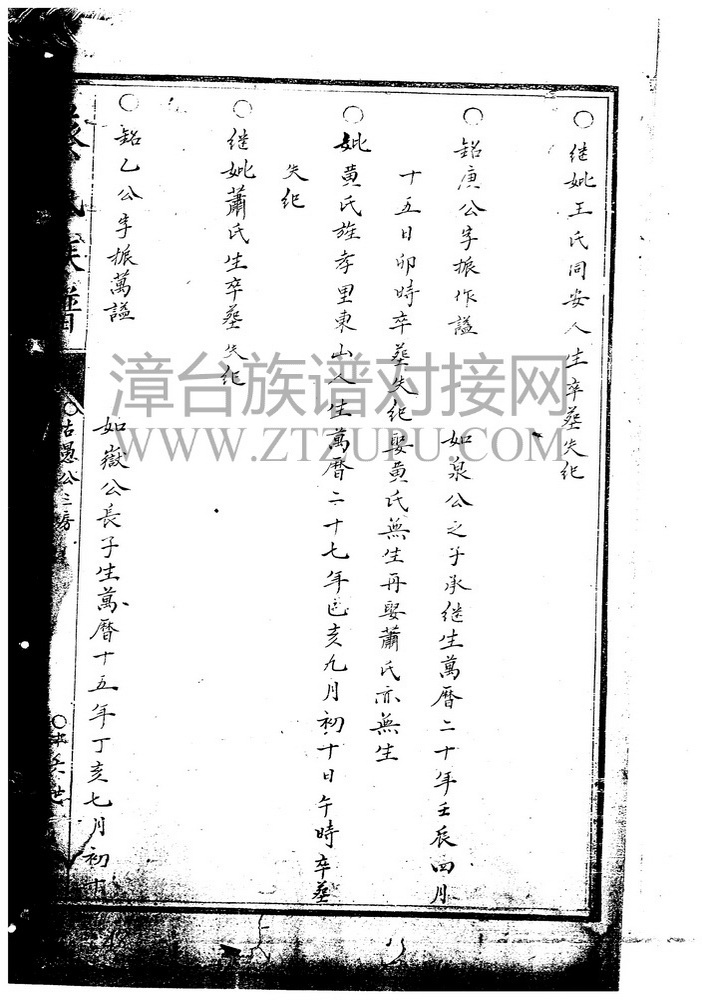 ○继妣王氏同安人生卒葬失纪
○銘庚公字振作諡　如泉公之子承继生萬曆二十年壬辰四月
十五日卯時卒葬失纪娶黄氏無生再娶蕭氏亦無生
○妣黄氏旌孝里東山人生萬曆二十七年己亥九月初十日午時卒葬
失纪
○继妣蕭氏生卒葬失纪
○銘乙公字振萬諡　如嶽公長子生萬曆十五年丁亥七月初十
族譜
愚公三房
世
漳台族谱对接网
WWW.ZTZUPU.COM